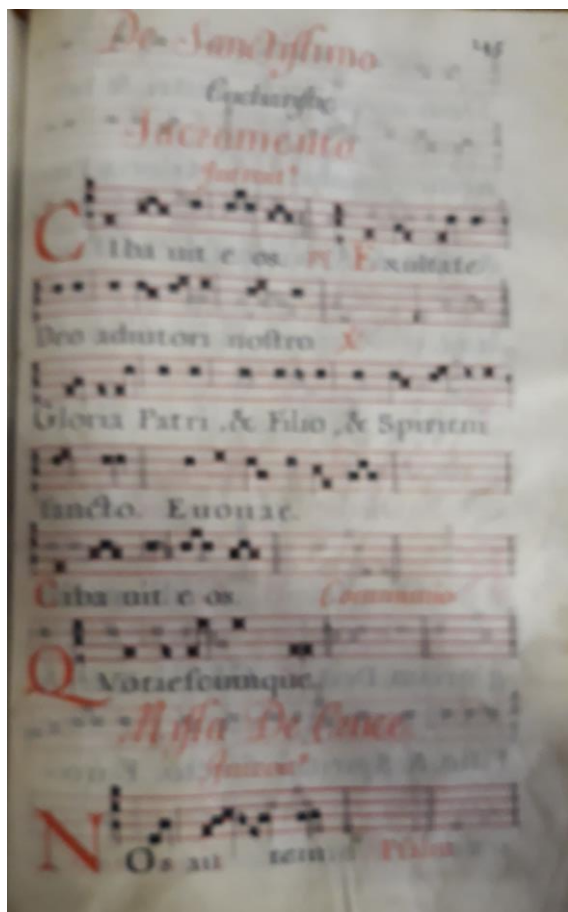 De Sanctissimo
145
Eucharistiæ
Sacramento
Introit⁹
CIba uit e os. Ps Exultate
Deo adiutori nostro ℣
Gloria Patri, & Filio, & Spiritui
sancto. Euouae.
Ciba uit e os. Communio
QVotiescunque.
Missa De Cruce.
Introit⁹
NOs au tem Psalm